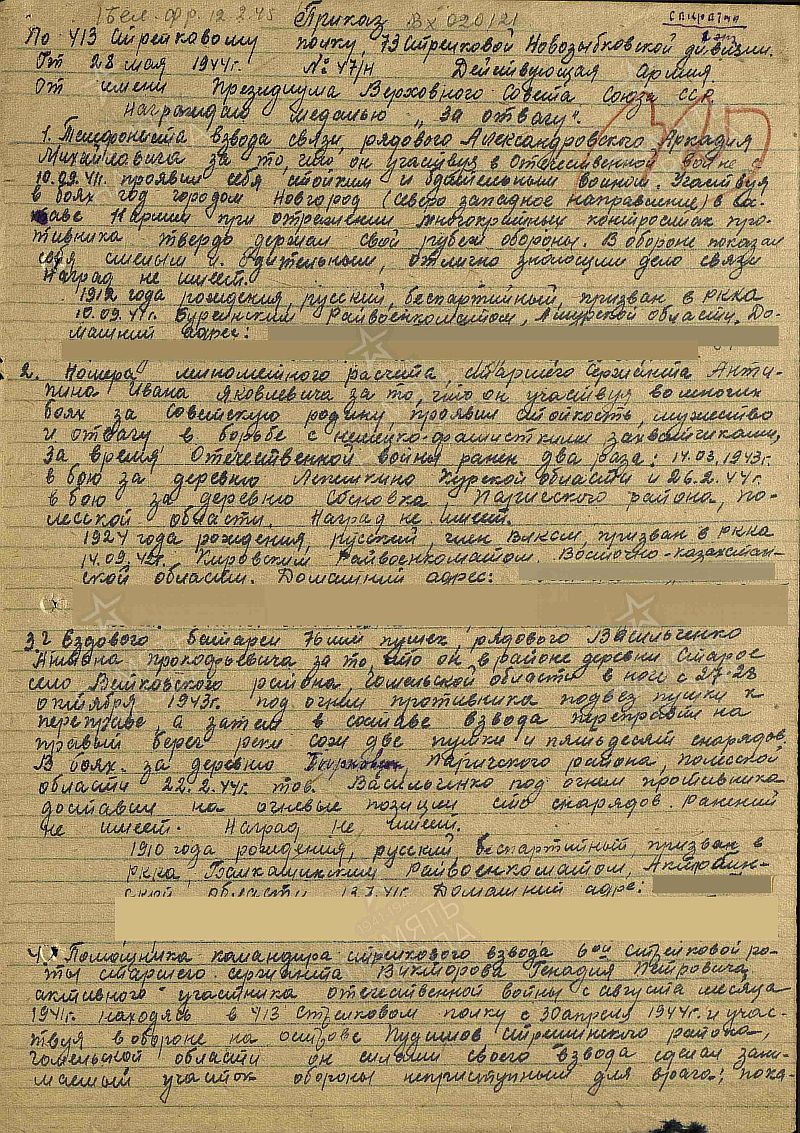 1 Бел. фр. 12.2.45 Приказ Вх 020121
По 413 Стрелковому полку, 73 Стрелковой Новозыбковской дивизии.
От 28 мая 1944г. №: 47/н Действующая армия.
От имени Президиума Верховного Совета Союза ССР
награждаю медалью „За отвагу".
1. Телефониста взвода связи, рядового Александровского Аркадия
Михайловича за то, что он участвуя в Отечественной войне с
10.09.41г. проявил себя стойким и бдительным воином. Участвуя
в боях под городом Новгород (северо западное направление) в сос-
таве 11 армии при отражении многократных контратак про-
тивника твердо держал свой рубеж обороны. В обороне показал
себя смелым и бдительным, отлично знающим дело связи
Наград не имеет.
1912 года рождения, русский, беспартийный, призван в РККА
10.09.41г. Бурейским Райвоенкоматом, Амурской области. До-
машний адрес:
2. Номера минометного расчета, старшего сержанта Анти-
пина Ивана Яковлевича за то, что он участвуя во многих
боях за Советскую родину, проявил стойкость, мужество
и отвагу в борьбе с немецко-фашисткими захватчиками,
за время Отечественной войны ранен два раза: 14.03.1943г.
в бою за деревню Лепешкино Курской области и 26.2.44г.
в бою за деревню Сосновка, Паричского района, По-
лесской области. Наград не имеет.
1924 года рождения, русский, член ВЛКСМ, призван в РККА
14.09.42г. Кировским Райвоенкоматом, Восточно-казахстан-
ской области. Домашний адрес:
3. Ездового батареи 76 мм пушек, рядового Васильченко
Антона Прокофьевича за то, что он в районе деревни Старое
село Ветковского района, Гомельской области в ночь с 27-28
октября 1943г. под огнем противника подвез пушки к
переправе, а затем в составе взвода переправил на
правый берег реки Сож две пушки и пятьдесят снарядов.
В боях за деревню Паричского района, Полеской
области 22.2.44г. тов. Васильченко под огнем противника
доставил на огневые позиции сто снарядов. Ранений
не имеет. Наград не имеет.
1910 года рождения, русский беспартийный, призван в
РККА, Райвоенкоматом, Актюбин-
ской области 41г. Домашний адрес:
4. Помощника командира стрелкового взвода 6ой стрелковой ро-
ты старшего сержанта Викторова Генадия Петровича,
активного участника отечественной войны с августа месяца
1941г. находясь в 413 Стрелковом полку с 30 апреля 1944г. и учас-
твуя в обороне на острове Стрешинского района,
Гомельской области он силами своего взвода сделал зани-
маемый участок обороны неприступным для врага; пока-